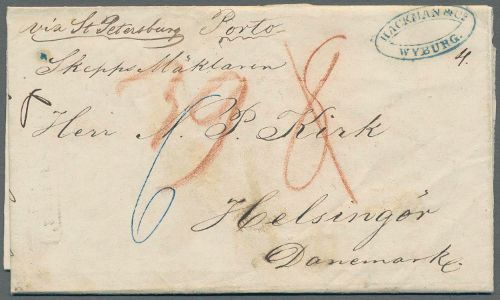 via St Petersburg Porto
HACKMAN & Co
WYBURG.
4.
Skepps Mäklaren
39 8
Herr N. P. Kirk
6
Helsingör
Danemark